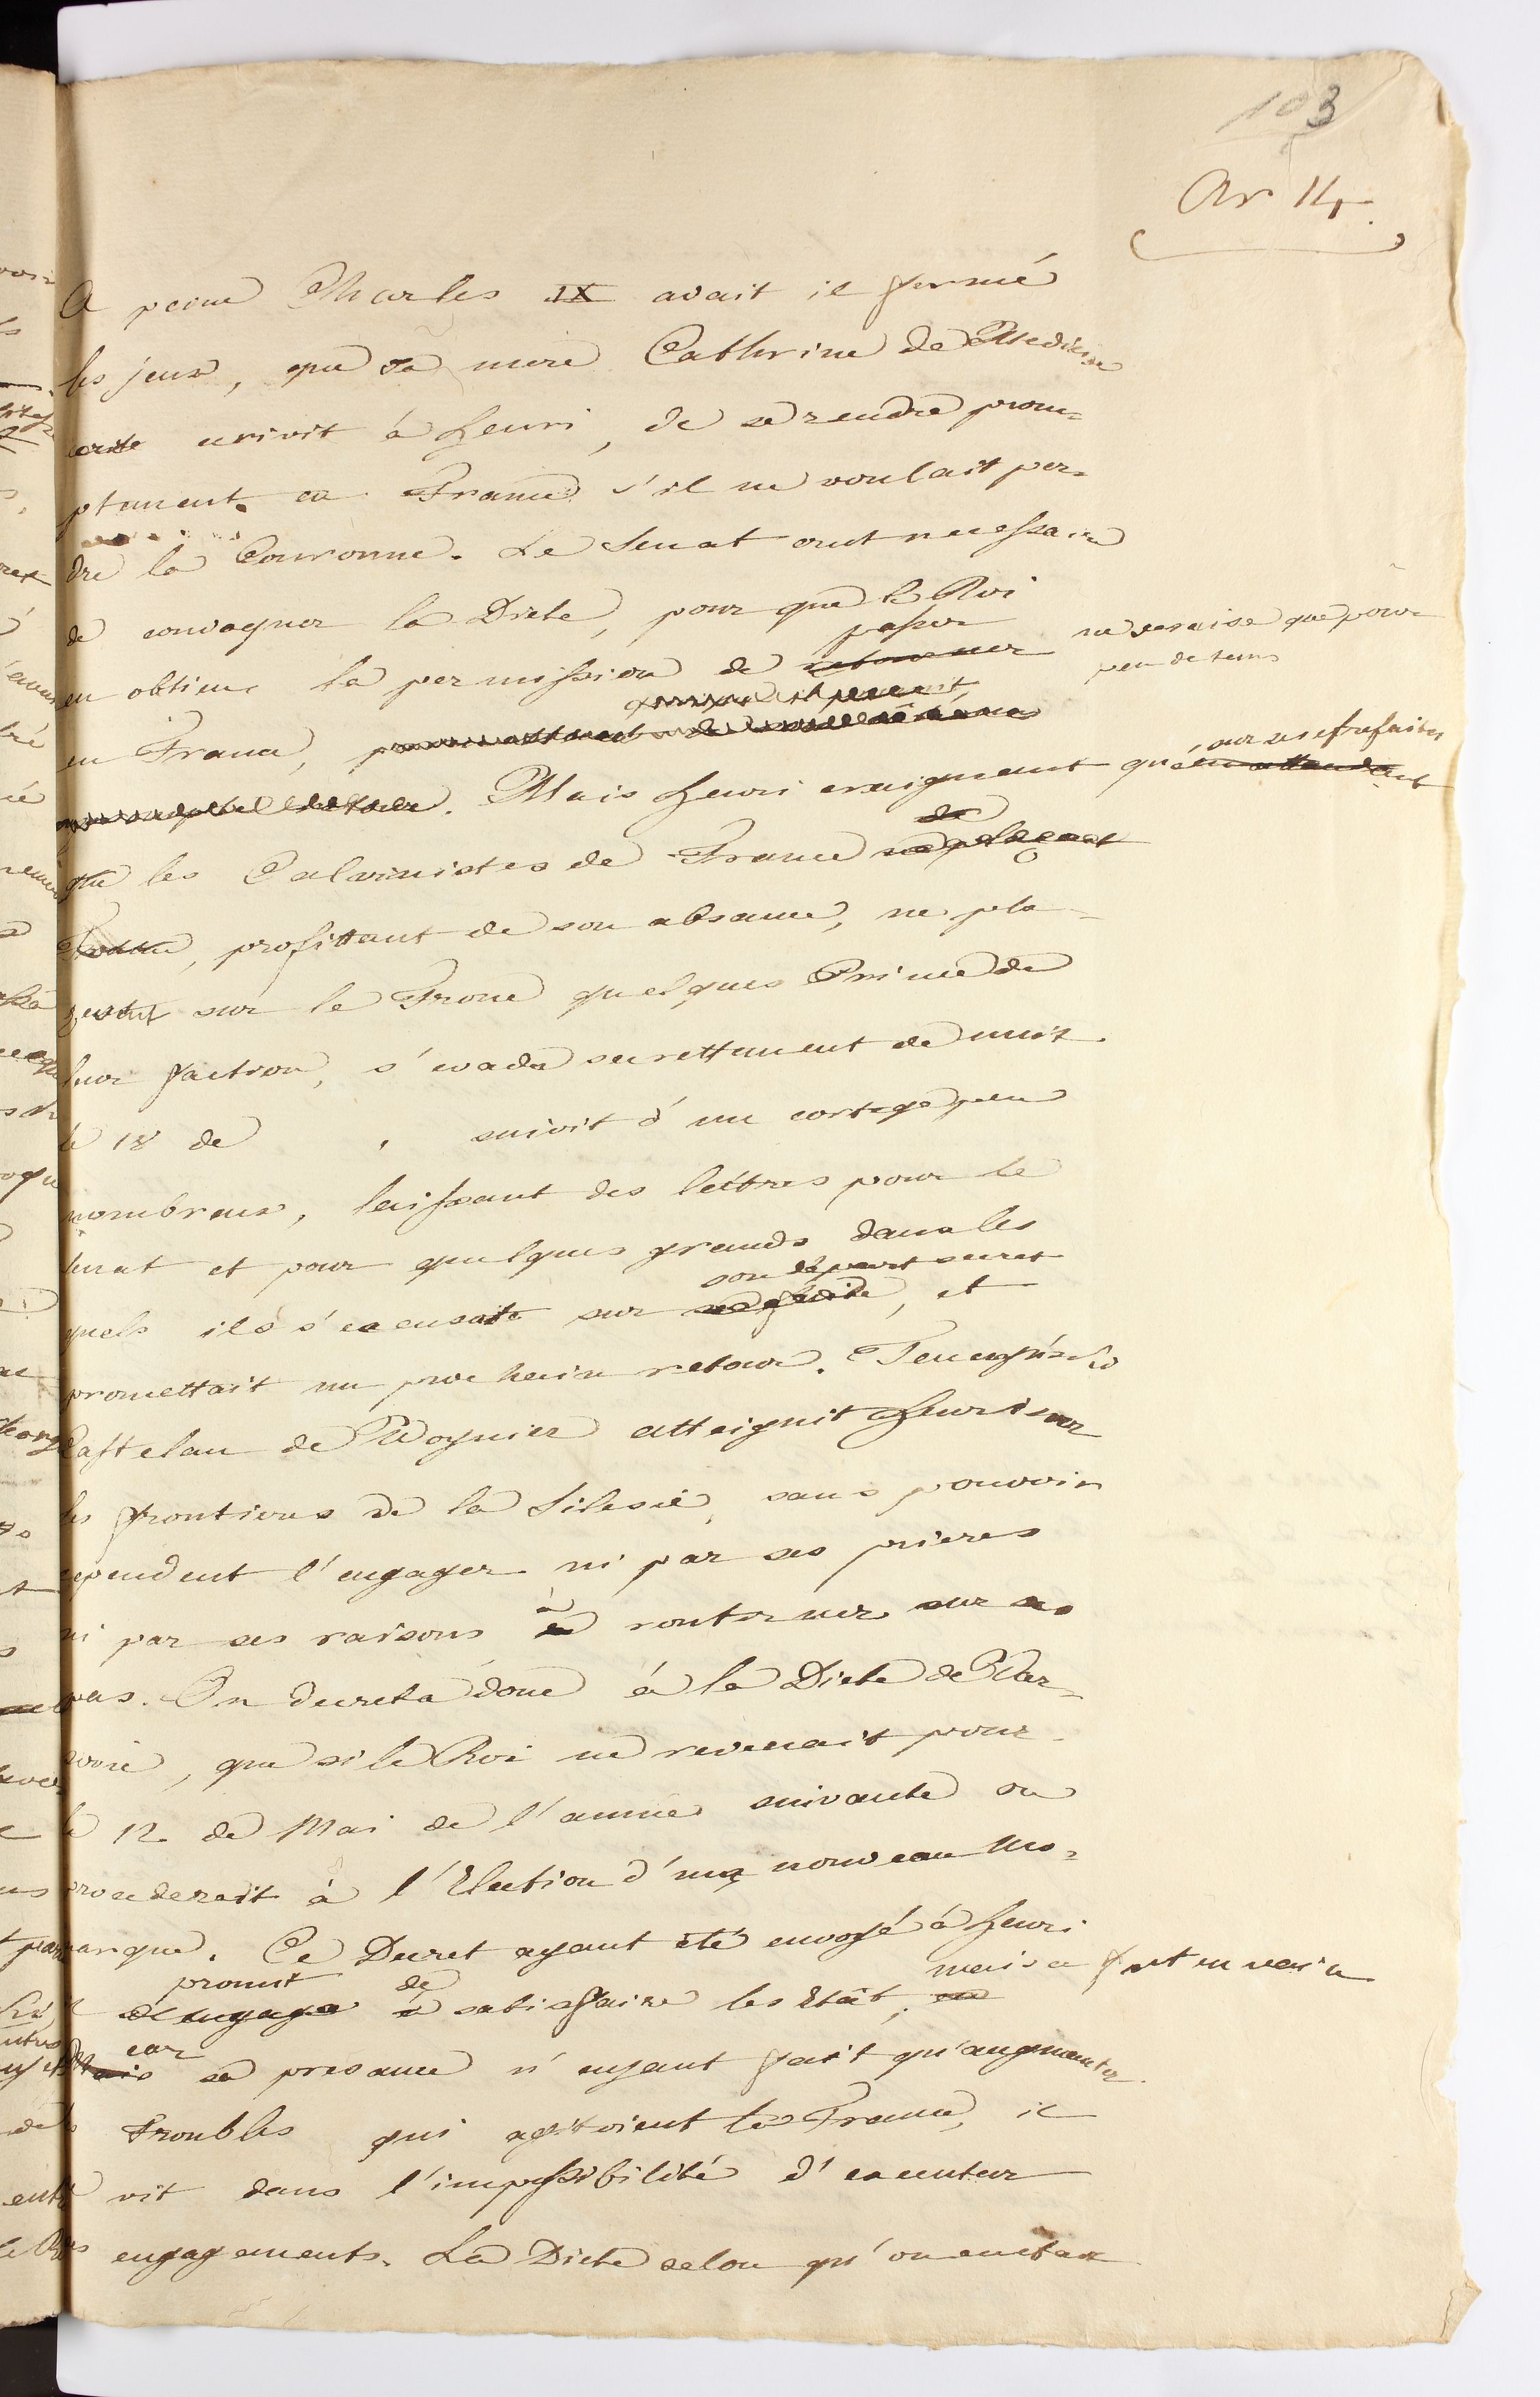 103
Ar 14.
A peine Charles IX avait il fermé
les jeux, que sa mere Cathrine de Medicis
ecrivit à Henri, de se rendre prom=
ptement en France s'il ne voulait per=
dre la Couronne. Le Senat crut necessaire
de convoquer la Diete, pour que le Roi
en obtienne la permission de retourner
passer
ne seraise que pour
peu de tems
en France,
. Mais Henri craignant qu'en attendant
sur ses
que les Calvinistes de France
, profittant de son absance, ne pla=
sur le Trone quelques Prince de
leur faction, s'evada secrettement de nuit
le 18 de , suivit d'un cortege peu
nombreux, laissant des lettres pour le
Senat et pour quelques grands dans les
quels ils s'excusait sur sa fuite, et
son départ secret
promettait un prochain retour. Tenczinski
Castelan de Woynicz atteignit Henri sur
les frontieres de la Silesie, sans pouvoir
cependent l'engager ni par ses prieres
ni par ses raisons à routerner sur ses
pas. On decreta donc à la Diete de Var=
sovie, que si le Roi ne revenait pour
le 12 de Mai de l'année suivante on
procederait à l'Election d'un nouveau Mo=
narque. Ce Decret ayant été envoyé à Henri
il s'engagea à satisfaire les Etat,
promit de
mais ce fut en vain
Mais sa presance n'eyant fait qu'augmenter
car
les troubles qui agitoient la France, il
se vit dans l'impossibilité d'executer
ses engagements. La Diete selon qu'on en etait